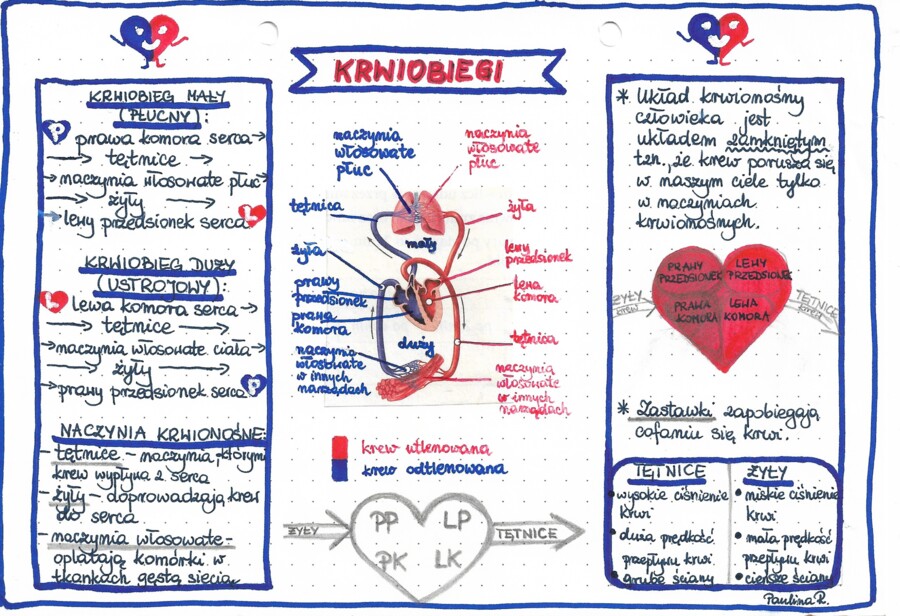 KRWIOBIEG MAŁY
(PŁUCNY):
P
prawa komora serca →
→ tętnice →
→ naczynia włosowate płuc →
→ żyły →
→ lewy przedsionek serca
L
KRWIOBIEG DUŻY
(USTROJOWY):
L
Lewa komora serca →
→ tętnice →
→ naczynia włosowate ciała →
→ żyły →
→ prawy przedsionek serca
P
NACZYNIA KRWIONOŚNE:
- tętnice - naczynia, którymi
krew wypływa z serca
- żyły - doprowadzają krew
do serca
- naczynia włosowate -
oplatają komórki w
tkankach gęstą siecią
KRWIOBIEGI
naczynia
włosowate
płuc
naczynia
włosowate
płuc
tętnica
żyła
mały
żyła
lewy
przedsionek
prawy
przedsionek
lewa
komora
prawa
komora
duży
tętnica
naczynia
włosowate
w innych
narządach
naczynia
włosowate
w innych
narządach
krew utlenowana
krew odtlenowana
ŻYŁY
PP
LP
PK
LK
TĘTNICE
* Układ krwionośny
człowieka jest
układem zamkniętym
tzn., że krew porusza się
w naszym ciele tylko
w naczyniach
krwionośnych.
PRAWY
PRZEDSIONEK
LEWY
PRZEDSIONEK
PRAWA
KOMORA
LEWA
KOMORA
ŻYŁY
krew
TĘTNICE
krew
* Zastawki zapobiegają
cofaniu się krwi.
TĘTNICE
• wysokie ciśnienie
krwi
• duża prędkość
przepływu krwi
• grube ściany
ŻYŁY
• niskie ciśnienie
krwi
• mała prędkość
przepływu krwi
• cieńsze ściany
Paulina R.